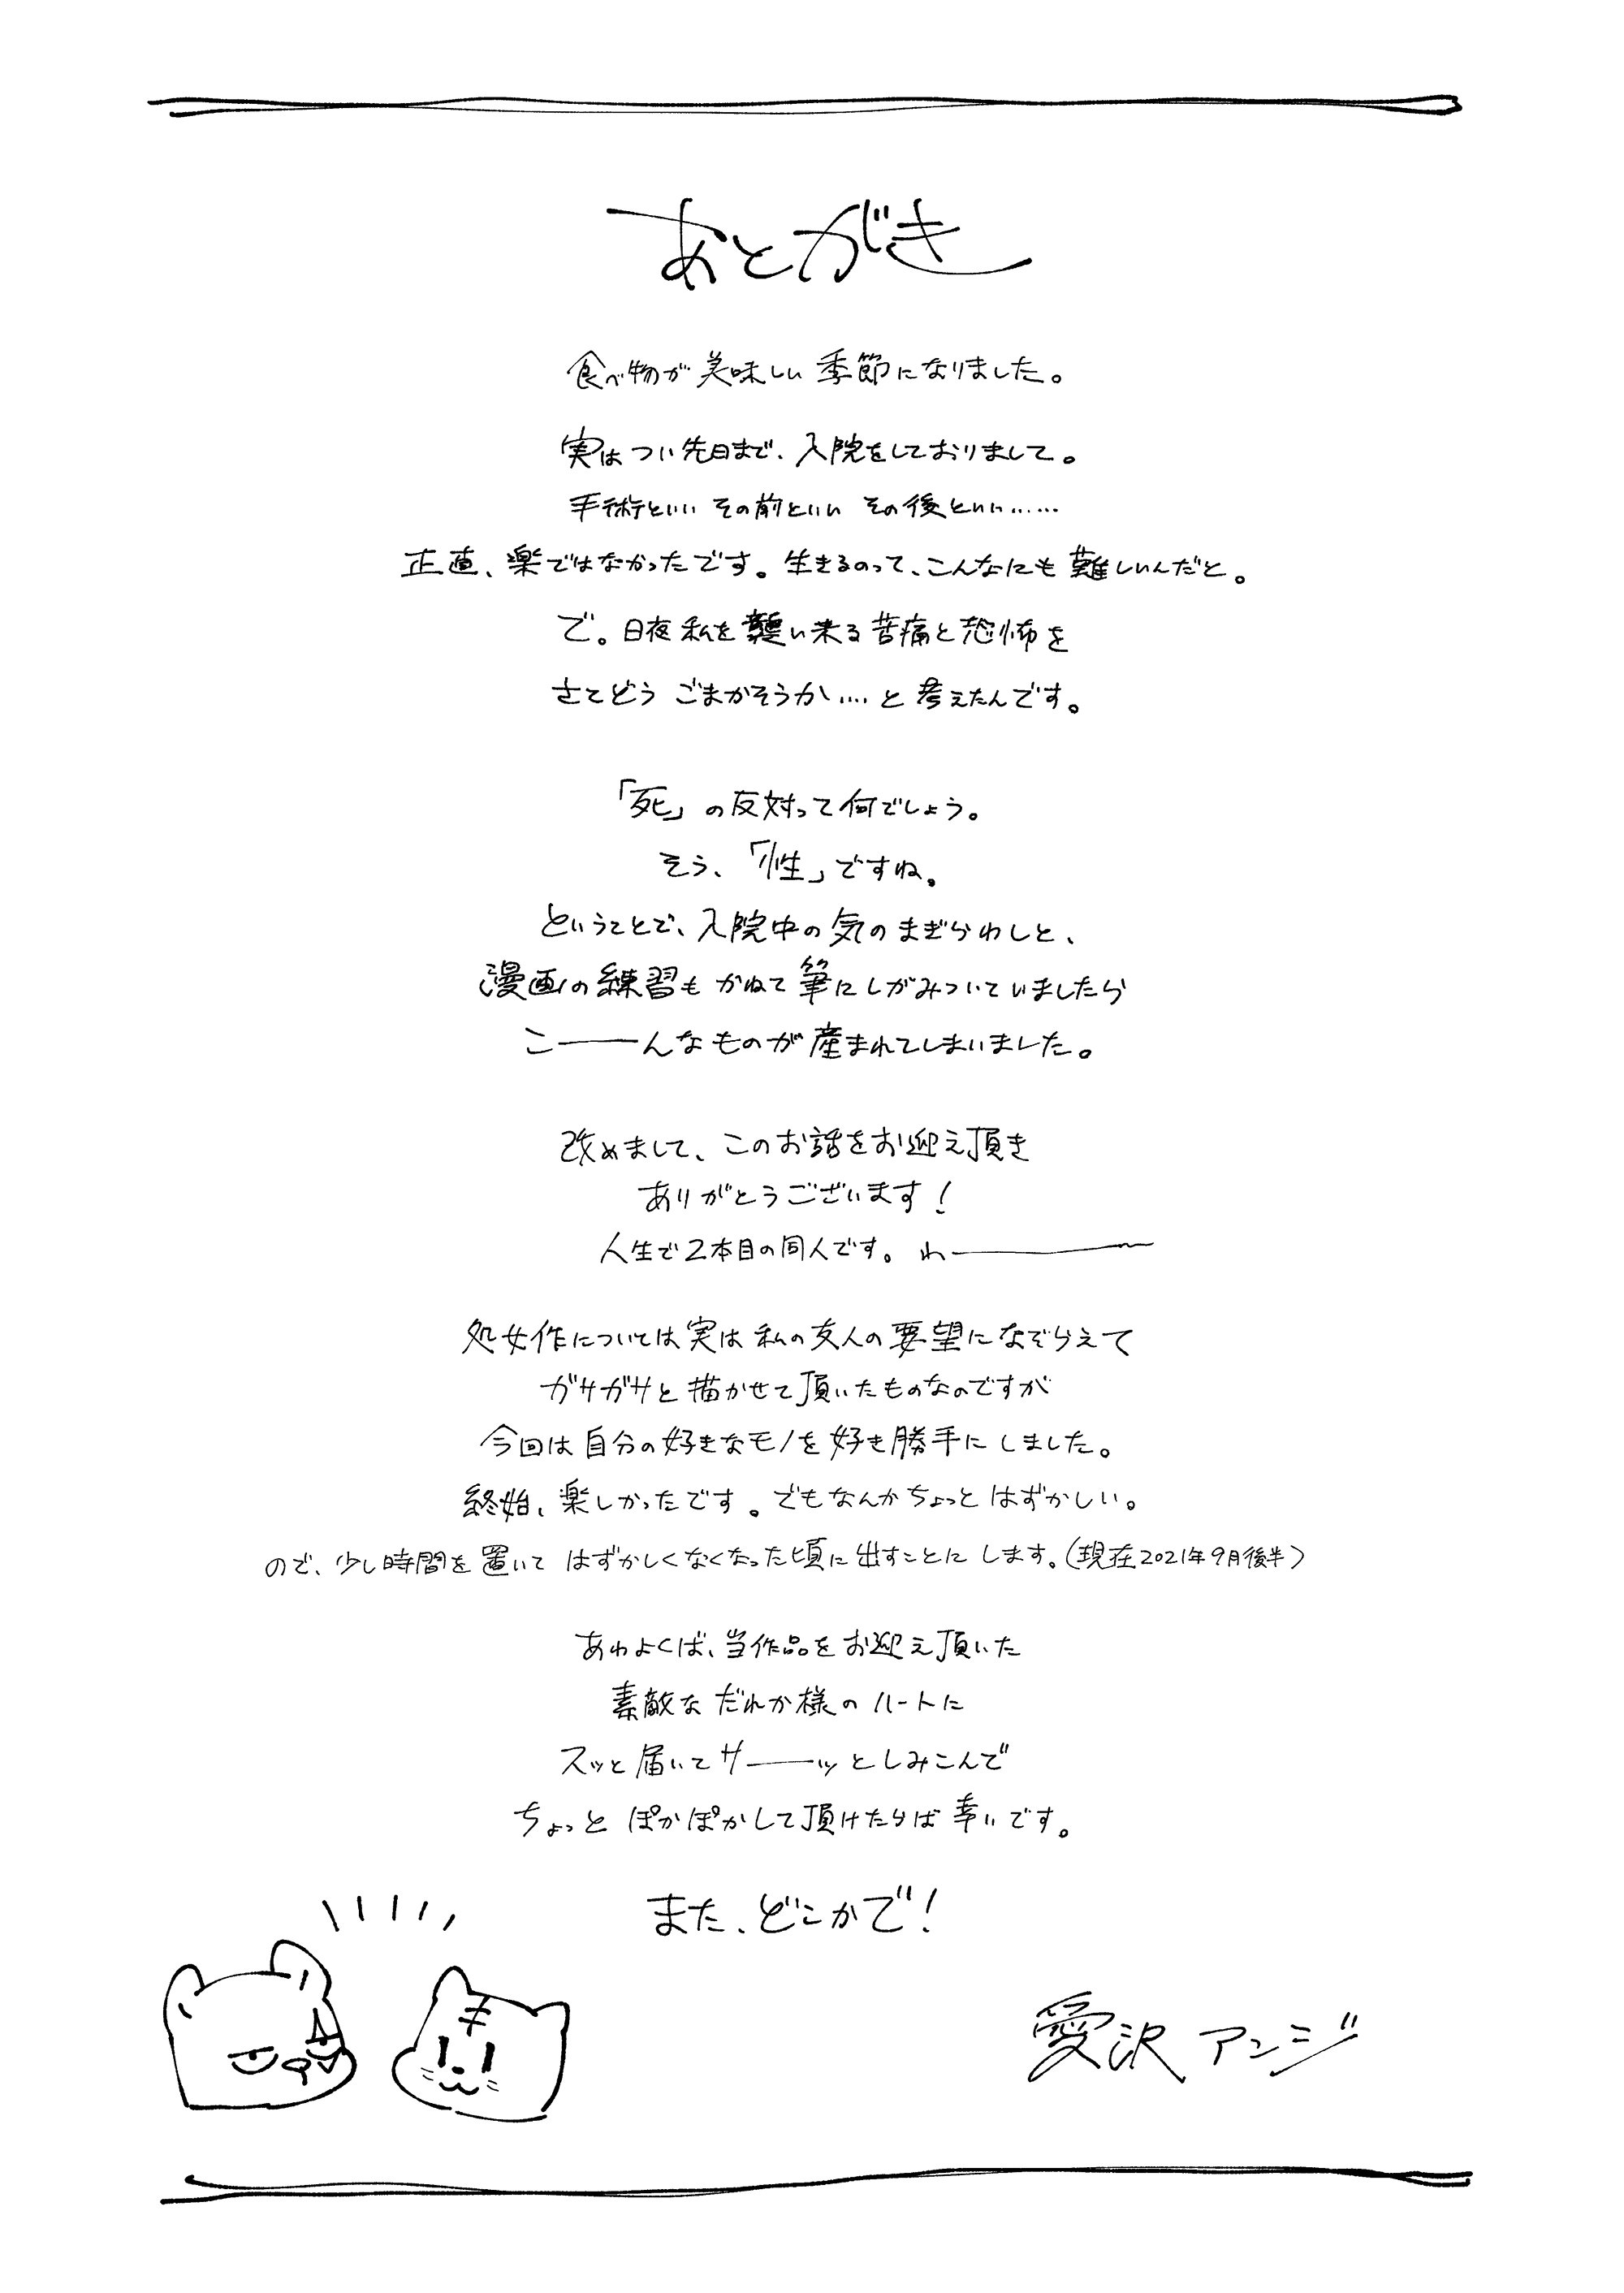 あとがき
食べ物が美味しい季節になりました。
実はつい先日まで、入院をしておりまして。
手術といい その前といい その後といい……
正直、楽ではなかったです。生きるのって、こんなにも難しいんだと。
で。日夜私を襲い来る苦痛と恐怖を
さてどう ごまかそうか…. と考えたんです。
「死」の反対って何でしょう。
そう、「性」ですね。
ということで、入院中の気のまぎらわしと、
漫画の練習も かねて筆にしがみついていましたら
こ――んなものが産まれてしまいました。
改めまして、このお話をお迎え頂き
ありがとうございます！
人生で2本目の同人です。わ―――
処女作については実は私の友人の要望になぞらえて
ガサガサと描かせて頂いたものなのですが
今回は自分の好きなモノを好き勝手にしました。
終始、楽しかったです。でもなんかちょっとはずかしい。
ので、少し時間を置いて はずかしくなくなった頃に出すことにします。(現在2021年9月後半)
あわよくば、当作品をお迎え頂いた
素敵なだれか様のハートに
スッと届いてサ――ッとしみこんで
ちょっと ぽかぽかして頂けたらば幸いです。
また、どこかで！
愛沢アンジ